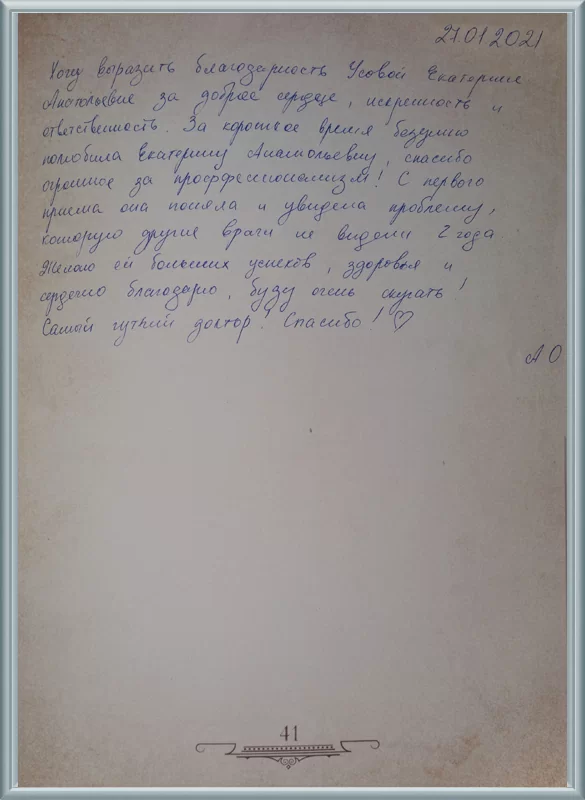 27.01.2021
Хочу выразить благодарность Усовой Екатерине
Анатольевне за доброе сердце, искренность и
ответственность. За короткое время безумно
полюбила Екатерину Анатольевну, спасибо
огромное за просффессионализм! С первого
приема она поняла и увидела проблему,
которую другие врачи не видели 2 года
Желаю ей больших успехов, здоровья и
сердечно благодарю, буду очень скучать!
Самый чуткий доктор! Спасибо! ♡
АО
41